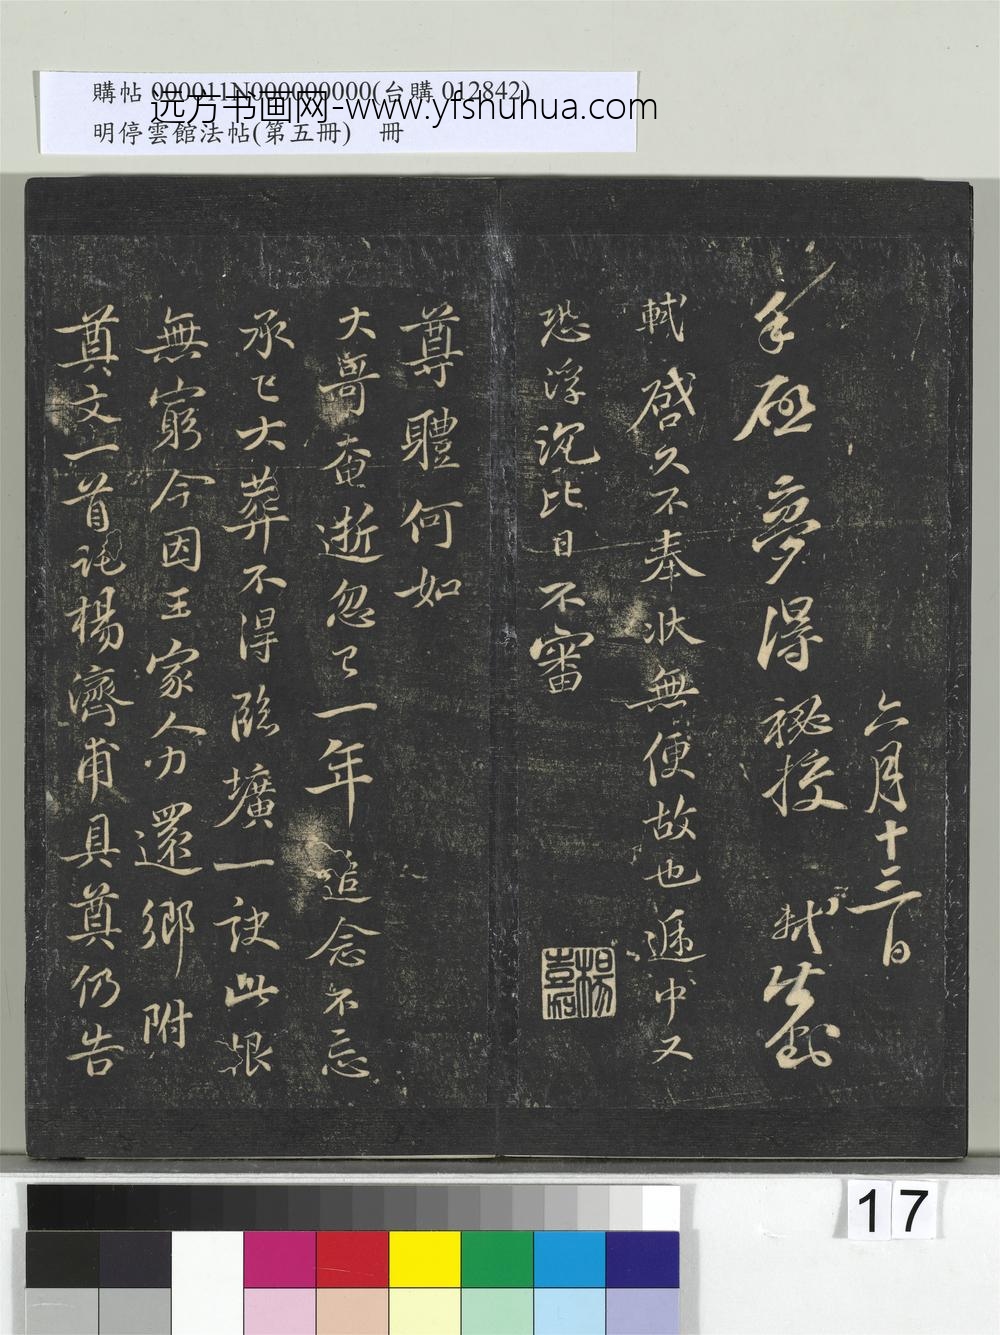 購帖 000011N000000000(台購 012842)
远方书画网-www.yfshuhua.com
明停雲館法帖(第五冊) 冊
六月十三日
手啟夢得祕校 軾
軾啓久不奉狀無便故也遞中又
恐浮沉比日不審
尊體何如
大哥奄逝忽已一年追念不忘
承已大葬不得臨壙一訣此恨
無窮今因王家人力還鄉附
奠文一首託楊濟甫具奠仍告
17